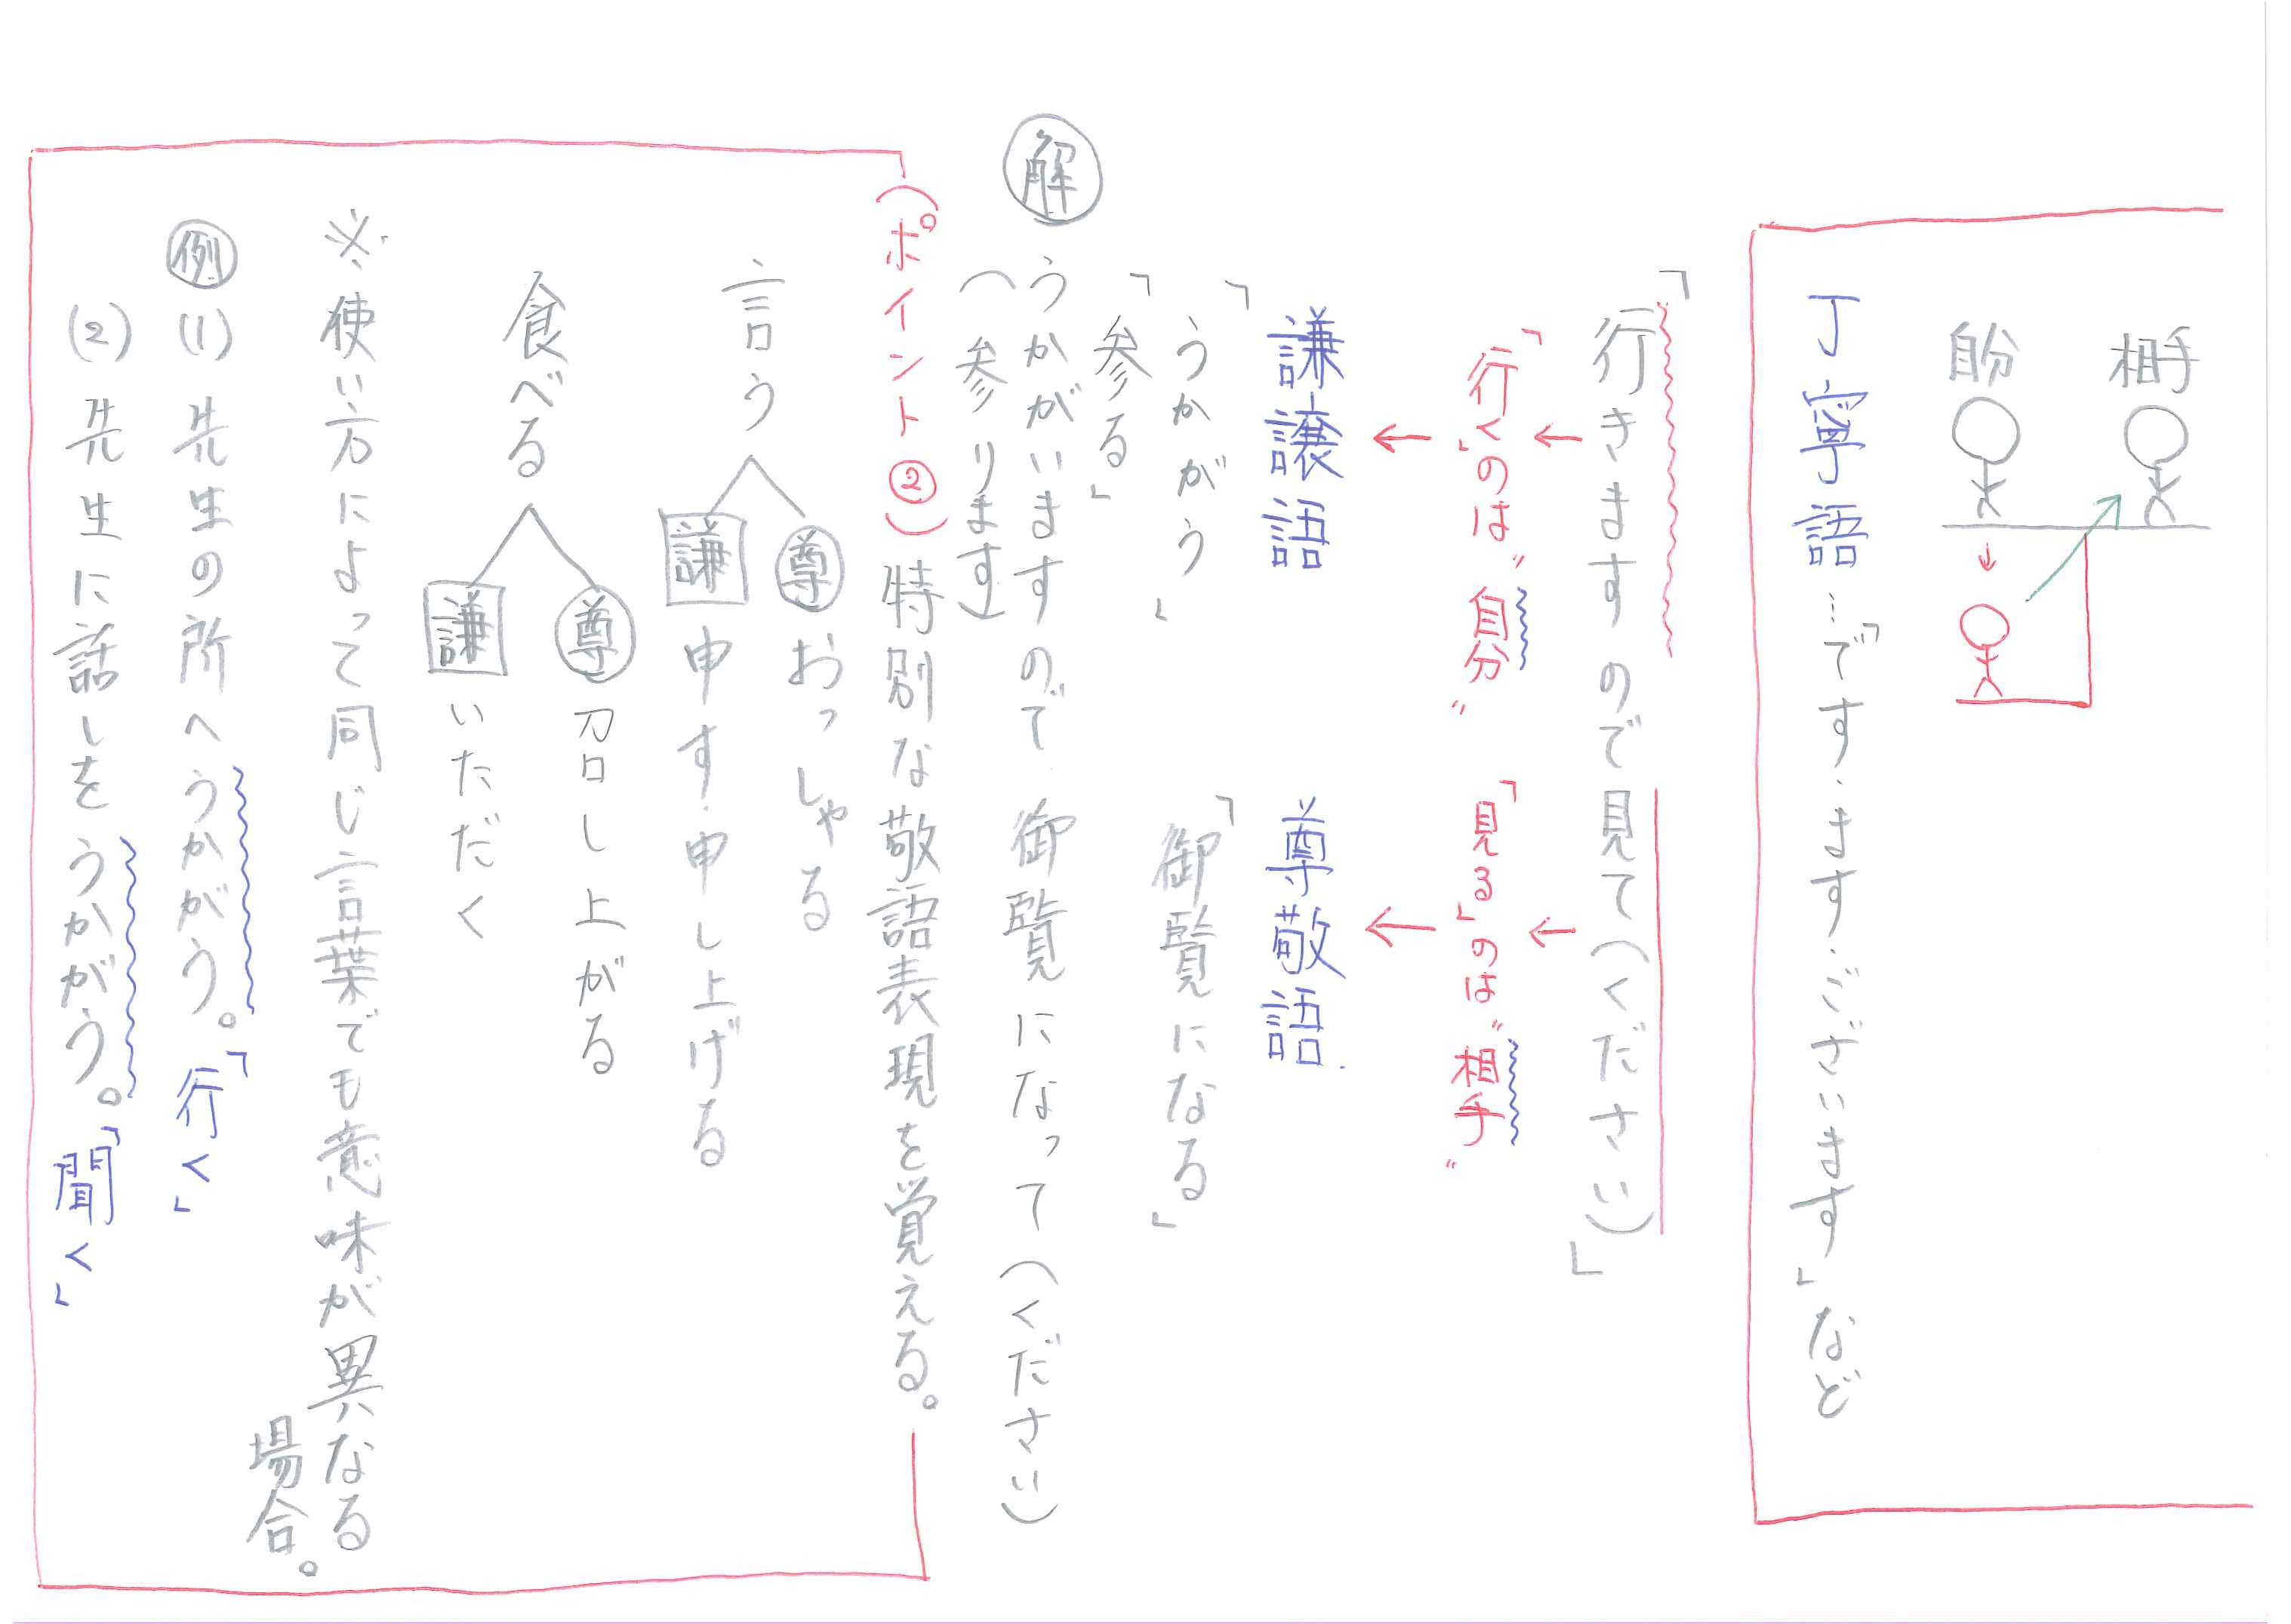 相手
自分
丁寧語…「です・ます・ございます」など
「行きますので見て(ください)」
「行く」のは〝自分〟
「見る」のは〝相手〟
謙譲語
尊敬語
「うかがう」
「御覧になる」
「参る」
解 うかがいますので御覧になって(ください)
(参ります)
(ポイント②)特別な敬語表現を覚える。
言う
尊 おっしゃる
謙 申す・申し上げる
食べる
尊 召し上がる
謙 いただく
※使い方によって同じ言葉でも意味が異なる
場合。
例 (1) 先生の所へうかがう。「行く」
(2) 先生に話しをうかがう。「聞く」